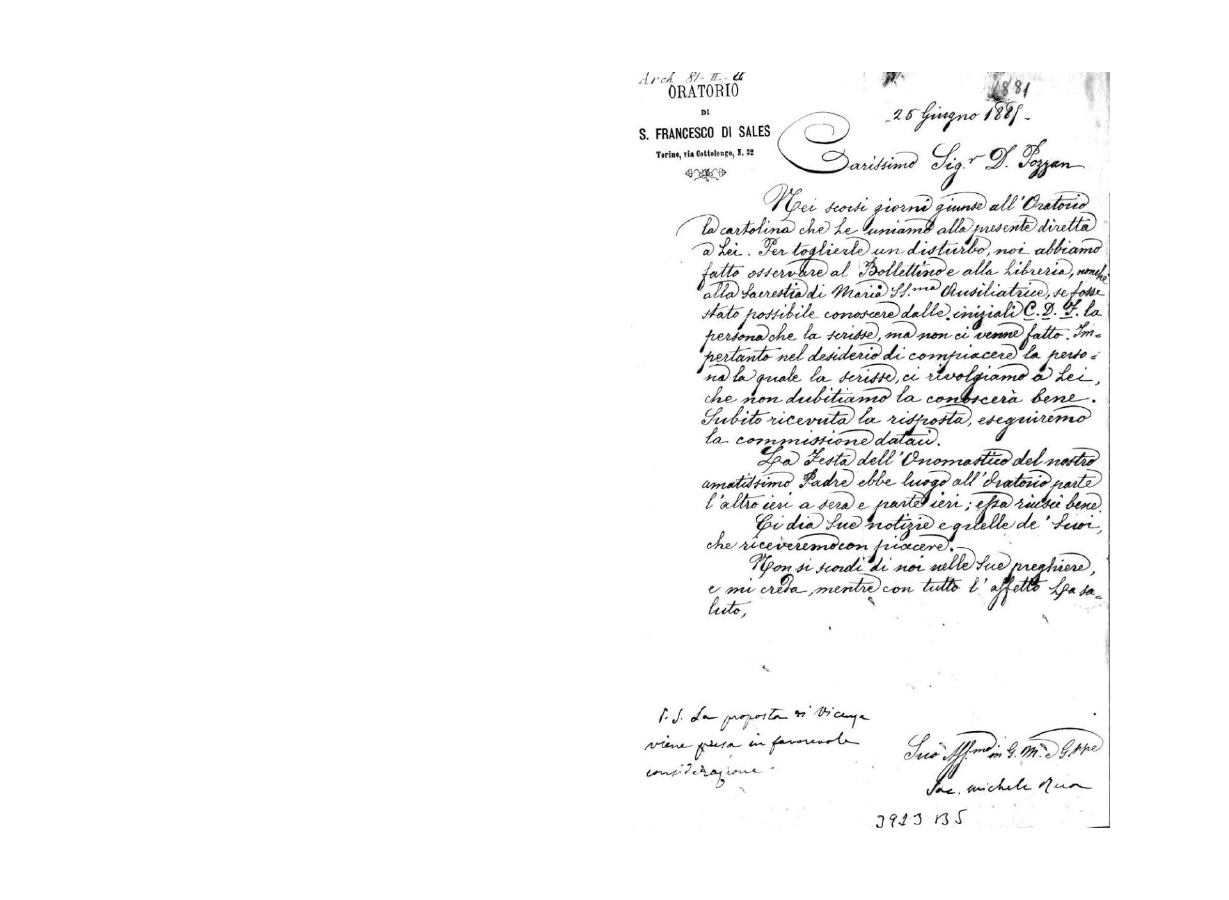 Arch. 81-II-
1881
ORATORIO
DI
S. FRANCESCO DI SALES
Torino, via Cottolengo, N. 32
25 Giugno 1881-
Carissimo Sig.r D. Pozzan
Nei scorsi giorni giunse all'Oratorio
la cartolina che Le uniamo alla presente diretta
a Lei. Per toglierle un disturbo, noi abbiamo
fatto osservare al Bollettino e alla Libreria, nonchè
alla Sacrestia di Maria SS.ma Ausiliatrice, se fosse
stato possibile conoscere dalle iniziali C. D. F. la
persona che la scrisse, ma non ci venne fatto. Im=
pertanto nel desiderio di compiacere la perso=
na la quale la scrisse, ci rivolgiamo a Lei,
che non dubitiamo la conoscerà bene.
Subito ricevuta la risposta, eseguiremo
la commissione dataci.
La Festa dell'Onomastico del nostro
amatissimo Padre ebbe luogo all'Oratorio parte
l'altro ieri a sera e parte ieri; essa riuscì bene.
Ci dia Sue notizie e quelle de' Suoi,
che riceveremo con piacere.
Non si scordi di noi nelle Sue preghiere,
e mi creda, mentre con tutto l'affetto La sa=
luto,
P.S. La proposta di Vicenza
viene presa in favorevole
considerazione.
Suo Aff.mo in G. M. e G.ppe
Sac. Michele Rua
3923 B5